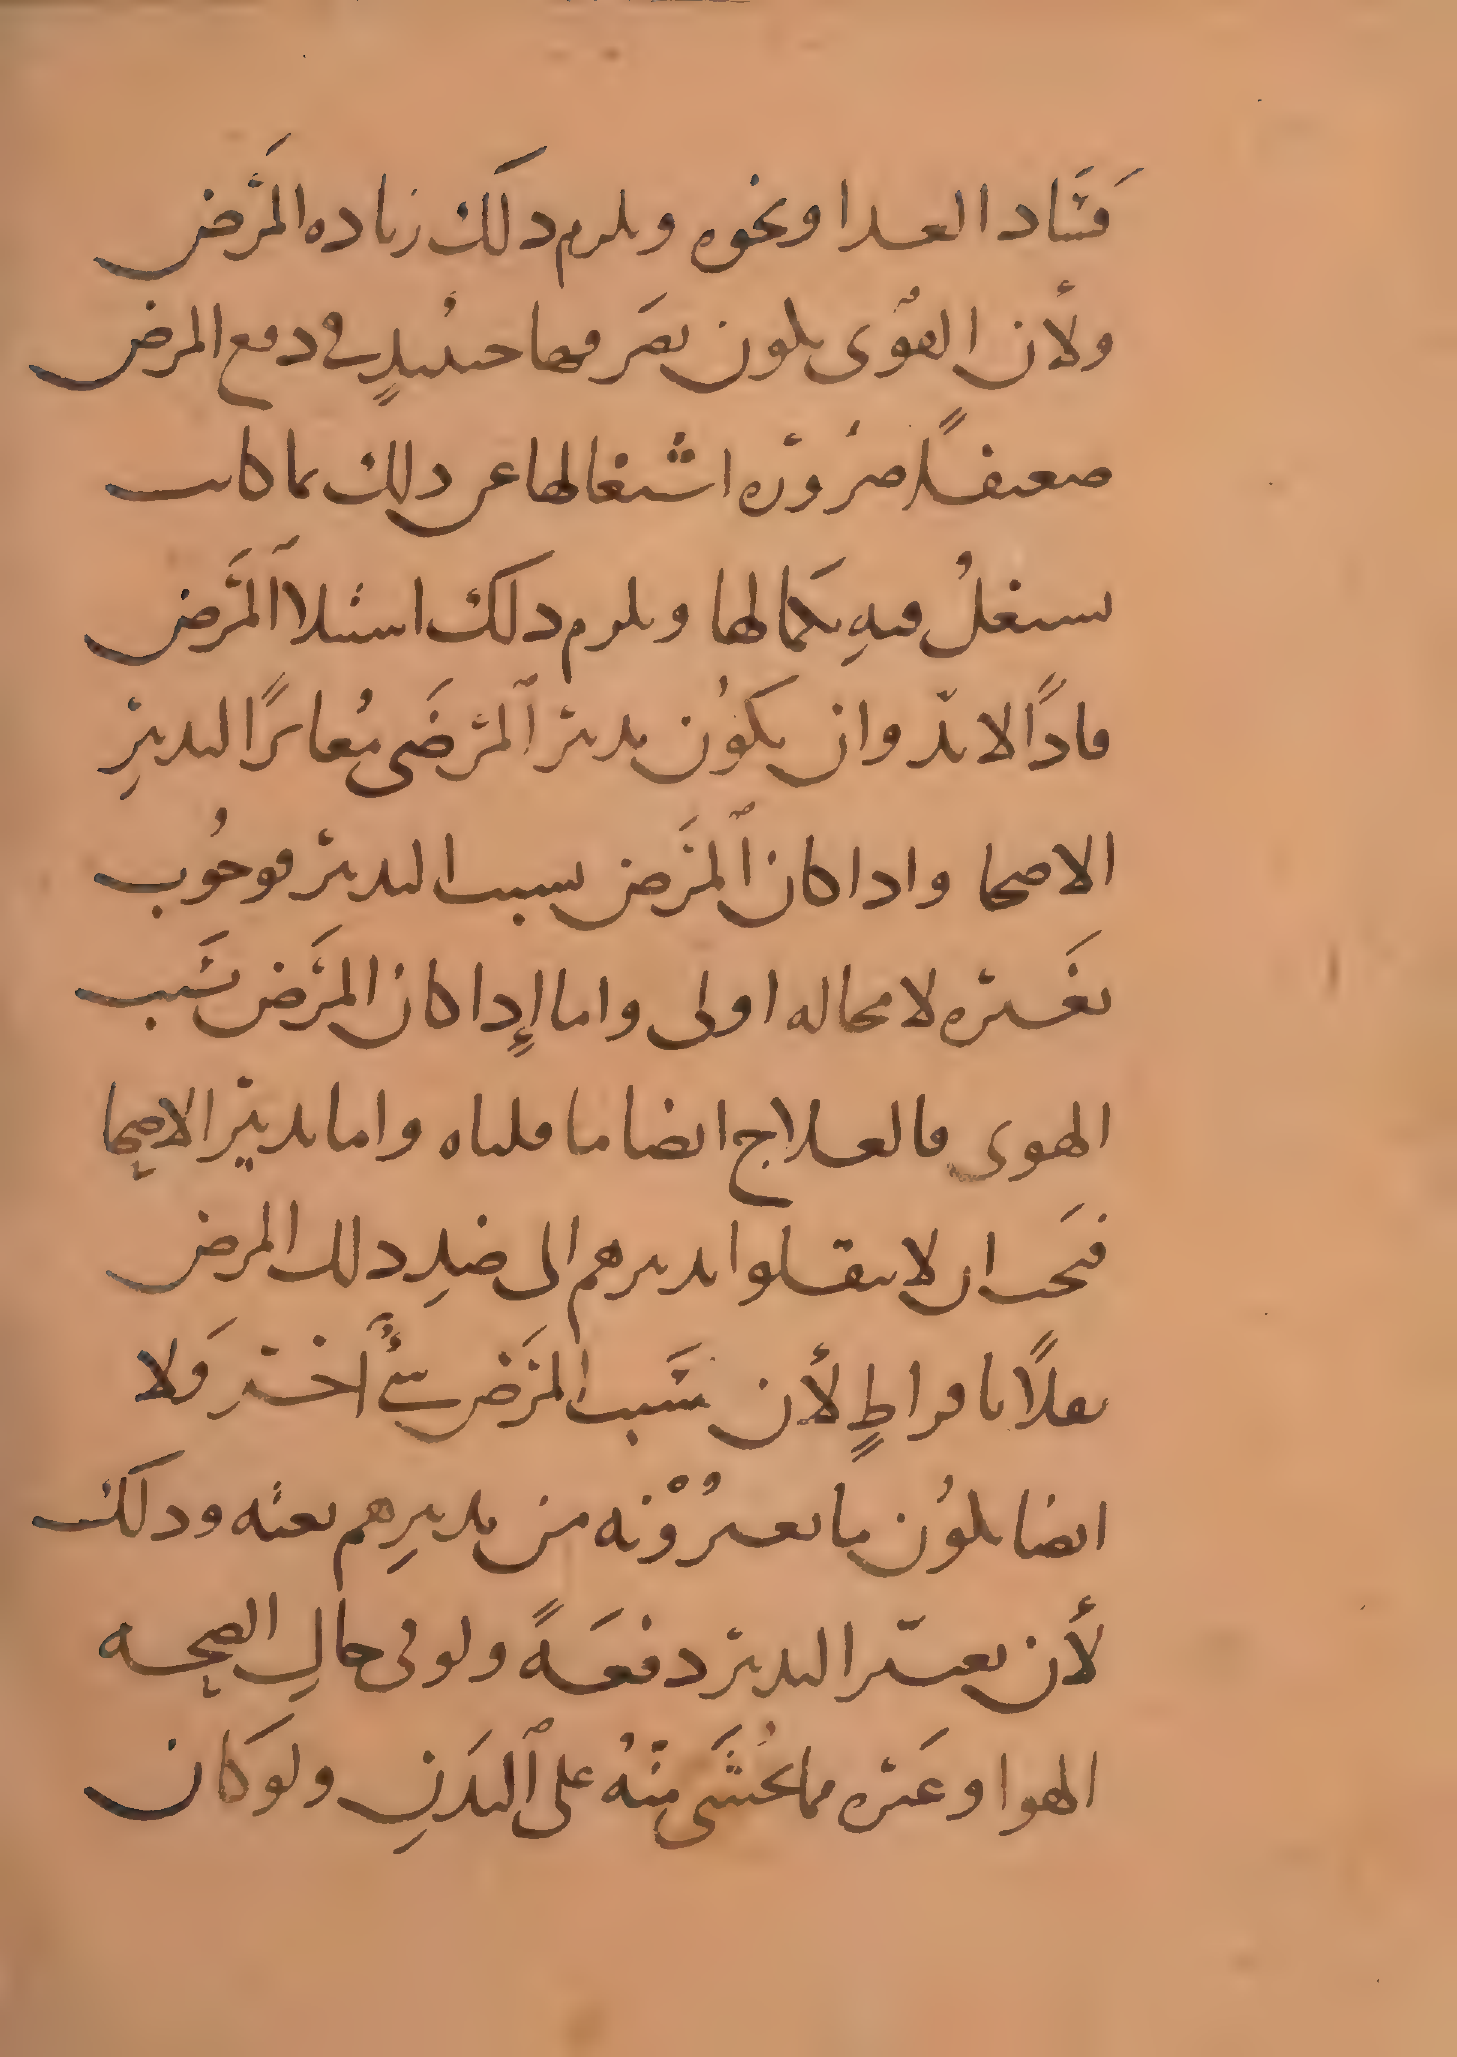 فساد الغدا ونحوه ويلزم ذلك زياده المرض
ولأن القوى يكون تصرفها حينئيذٍ في دفع المرض
ضعيفًا ضرورة اشتغالها عن ذلك بما كانت
تستغلُ فيهِ بكمالها ويلزم ذلك استيلا المَرض
فاذًا لا بدّ وان يكوُن تدبير المرضَى مُغايرًا لتدبيرِ
الاصحا واذا كان المَرض بسبب التدبير فوجُوب
تغَييره لا محاله اولى واما إذا كان المَرض بسَبب
الهوى فالعلاج ايضا ما قلناه واما تدبير الاصحا
فيجَب ان لا ينقلوا تدبيرهم الى ضدِ ذلك المرض
نقلاً بافراطٍ لأن سَبب المرَض شئٌ اخر وَلا
ايضا يكوُن ما يغيرُوْنه من تدبيرِهم بغته وذلك
لأن تغيّير التدبير دفعَةً ولو في حالِ الصحه
الهوا وغَيره مما يُخشَى منهُ على البَدَنِ ولو كان